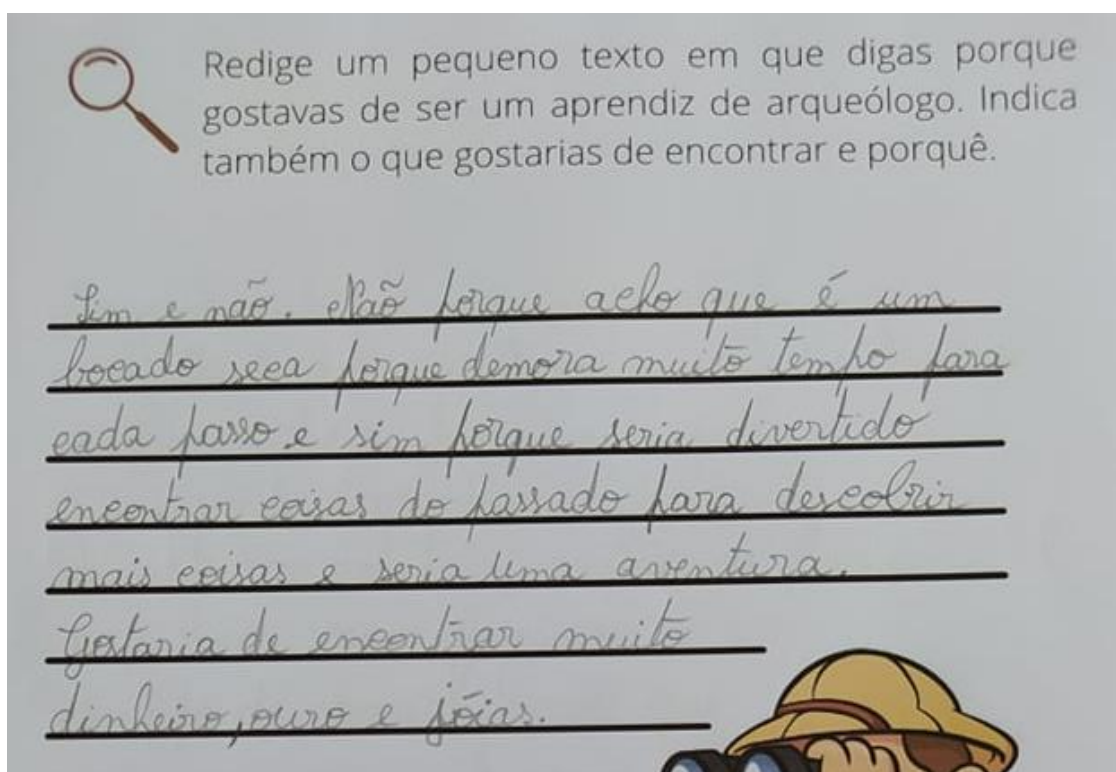 Redige um pequeno texto em que digas porque
gostavas de ser um aprendiz de arqueólogo. Indica
também o que gostarias de encontrar e porquê.
Sim e não. Não porque acho que é um
bocado seca porque demora muito tempo para
cada passo e sim porque seria divertido
encontrar coisas do passado para descobrir
mais coisas e seria uma aventura.
Gostaria de encontrar muito
dinheiro, ouro e jóias.